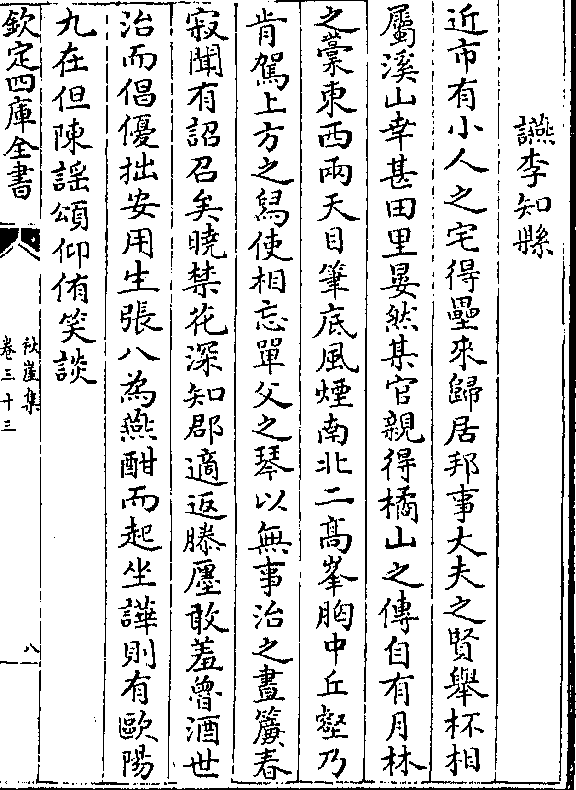 讌李知縣
近市有小人之宅得壘來歸居邦事大夫之賢舉杯相
屬溪山幸甚田里晏然某官親得橘山之傳自有月林
之藁東西兩天目筆底風煙南北二高峯胸中丘壑乃
肯駕上方之舄使相忘單父之琴以無事治之晝簾春
寂聞有詔召矣曉禁花深知郡適返滕廛敢羞魯酒世
治而倡優拙安用生張八為燕酣而起坐譁則有歐陽
九在但陳謡頌仰侑笑談
欽定四庫全書
秋崖集
卷三十三
八